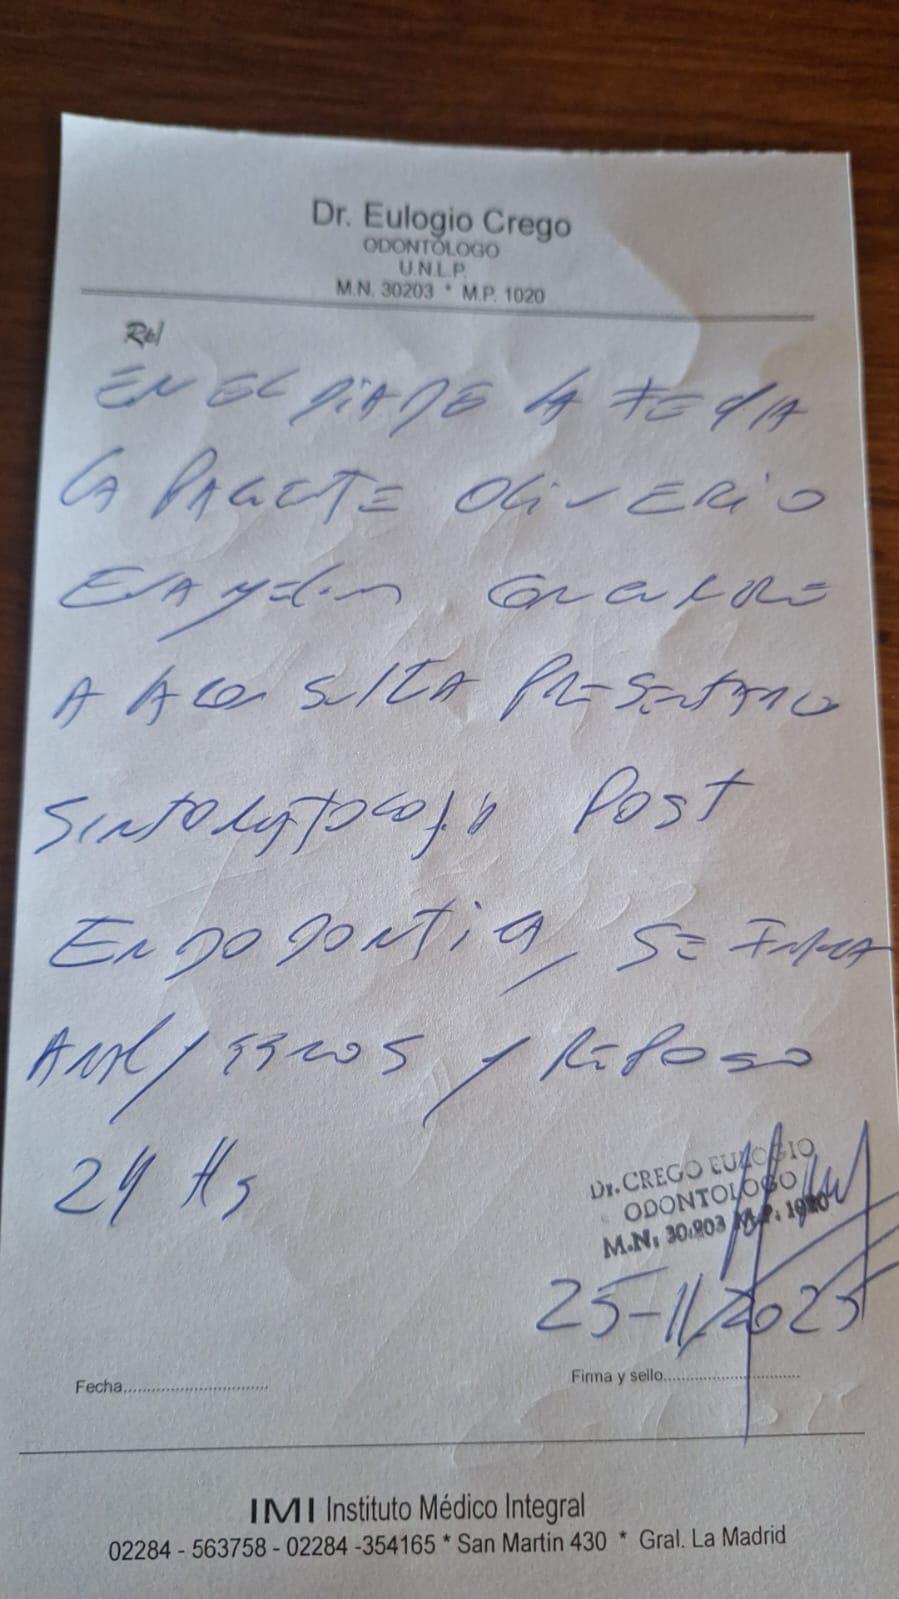 Dr. Eulogio Crego
ODONTÓLOGO
U.N.L.P.
M.N. 30203 * M.P. 1020
Rp/
EN EL DIA DE LA FECHA
LA PACIENTE OLIVERIO
CONCURRE
A LA CONSULTA PRESENTANDO
SINTOMATOLOGIA POST
ENDODONTIA, SE INDICA
Y REPOSO
24 Hs
Dr. CREGO EULOGIO
ODONTOLOGO
M.N: 30.203 M.P: 1020
25-11/2025
Fecha................................
Firma y sello................................
IMI Instituto Médico Integral
02284 - 563758 - 02284 -354165 * San Martin 430 * Gral. La Madrid